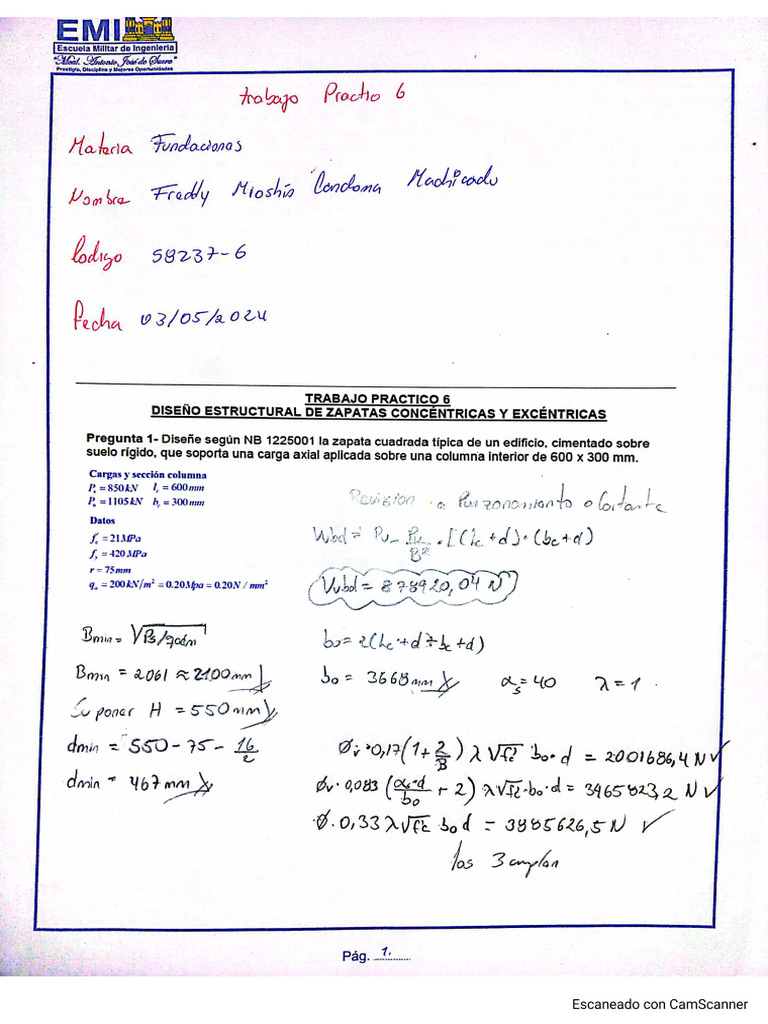 EMI
Escuela Militar de Ingeniería
"Mcal. Antonio José de Sucre"
Prestigio, Disciplina y Mejores Oportunidades
trabajo Practio 6
Materia Fundaciones
Nombre Freddy Mioshis Condoma Machicado
Codigo S8237-6
Fecha 03/05/2024
TRABAJO PRACTICO 6
DISEÑO ESTRUCTURAL DE ZAPATAS CONCÉNTRICAS Y EXCÉNTRICAS
Pregunta 1- Diseñe según NB 1225001 la zapata cuadrada típica de un edificio, cimentado sobre
suelo rígido, que soporta una carga axial aplicada sobre una columna interior de 600 x 300 mm.
Cargas y sección columna
Ps = 850 kN lc = 600 mm
Pu = 1105 kN bc = 300 mm
Datos
fc = 21 MPa
fy = 420 MPa
r = 75 mm
qa = 200 kN/m² = 0.20 Mpa = 0.20 N / mm²
Bmin = √Ps/qadm
Bmin = 2061 ≈ 2100 mm
Suponer H = 550 mm
dmin = 550 - 75 - 16/2
dmin = 467 mm
Revision a Punzonamiento o Cortante
Vubd = Pu - Pu/B² · [(hc + d) · (bc + d)
Vubd = 878920,04 N
bo = 2(hc + d + bc + d)
bo = 3668 mm αs = 40 λ = 1
Øv · 0,17 (1 + 2/B) λ √fc bo · d = 2001686,4 N ✓
Øv · 0,083 (αs · d/bo + 2) λ √fc · bo · d = 3465823,2 N ✓
Ø · 0,33 λ √fc bo d = 3885626,5 N ✓
las 3 cumplen
Pág. 1.
Escaneado con CamScanner